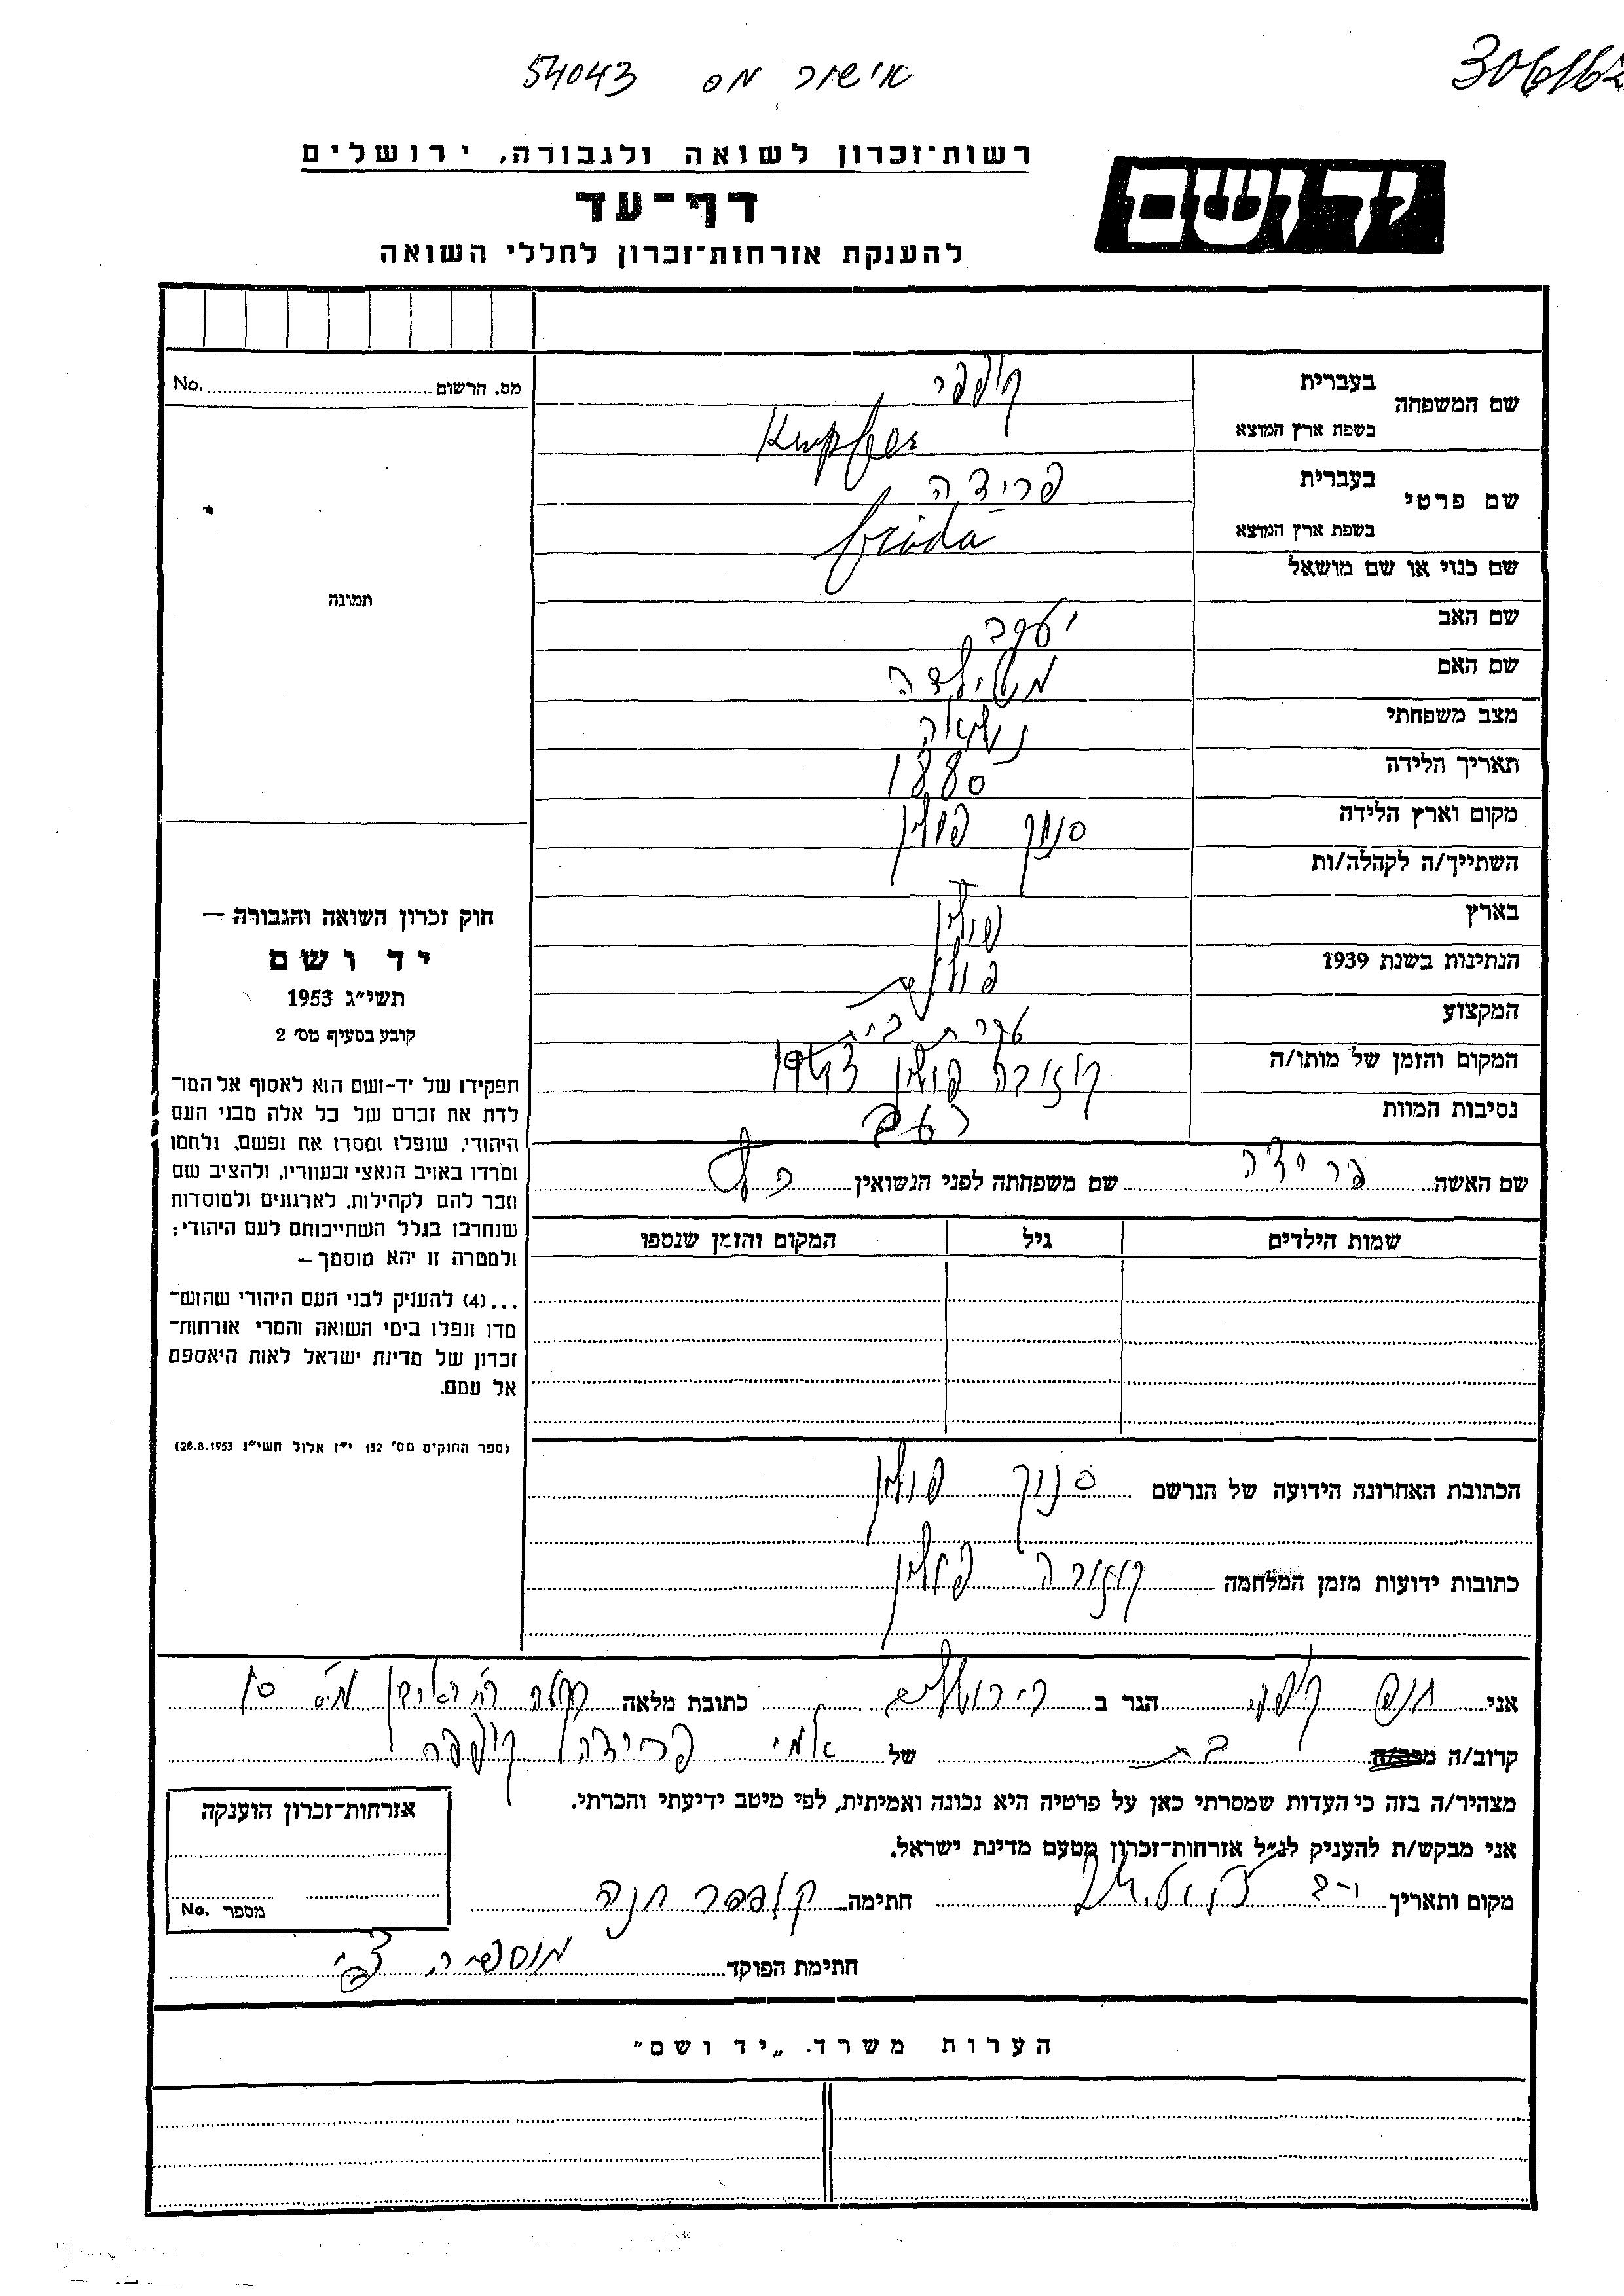 אישור מס 54043
306162
יד ושם
רשות־זכרון לשואה ולגבורה, ירושלים
דף־עד
להענקת אזרחות־זכרון לחללי השואה
מס. הרשום No.
תמונה
שם המשפחה
בעברית קופפר
בשפת ארץ המוצא Kupfer
שם פרטי
בעברית פרידה
בשפת ארץ המוצא frida
שם כנוי או שם מושאל
שם האב יעקב
שם האם מטילדה
מצב משפחתי נשואה
תאריך הלידה 1880
מקום וארץ הלידה סנוק פולין
השתייך/ה לקהלה/ות
בארץ פולין
הנתינות בשנת 1939 פולנית
המקצוע עקרת בית
המקום והזמן של מותו/ה פולין 1943
נסיבות המוות רעב
שם האשה פרידה שם משפחתה לפני הנשואין
שמות הילדים גיל המקום והזמן שנספו
הכתובת האחרונה הידועה של הנרשם סנוק פולין
כתובות ידועות מזמן המלחמה פולין
חוק זכרון השואה והגבורה —
יד ושם
תשי״ג 1953
קובע בסעיף מס׳ 2
תפקידו של יד-ושם הוא לאסוף אל המו־
לדת את זכרם של כל אלה מבני העם
היהודי, שנפלו ומסרו את נפשם, נלחמו
ומרדו באויב הנאצי ובעוזריו, ולהציב שם
וזכר להם לקהילות, לארגונים ולמוסדות
שנחרבו בגלל השתייכותם לעם היהודי;
ולמטרה זו יהא מוסמך —
...(4) להעניק לבני העם היהודי שהוש־
מדו ונפלו בימי השואה והמרי אזרחות־
זכרון של מדינת ישראל לאות היאספם
אל עמם.
(ספר החוקים מס׳ 132 י״ז אלול תשי״ג 28.8.1953)
אני חנה קופפר הגר ב ירושלים כתובת מלאה מס 10
קרוב/ה בת של אמי פרידה קופפר
מצהיר/ה בזה כי העדות שמסרתי כאן על פרטיה היא נכונה ואמיתית, לפי מיטב ידיעתי והכרתי.
אני מבקש/ת להעניק לנ״ל אזרחות־זכרון מטעם מדינת ישראל.
מקום ותאריך חתימה קופפר חנה
חתימת הפוקד
אזרחות־זכרון הוענקה
מספר No.
הערות משרד „יד ושם״